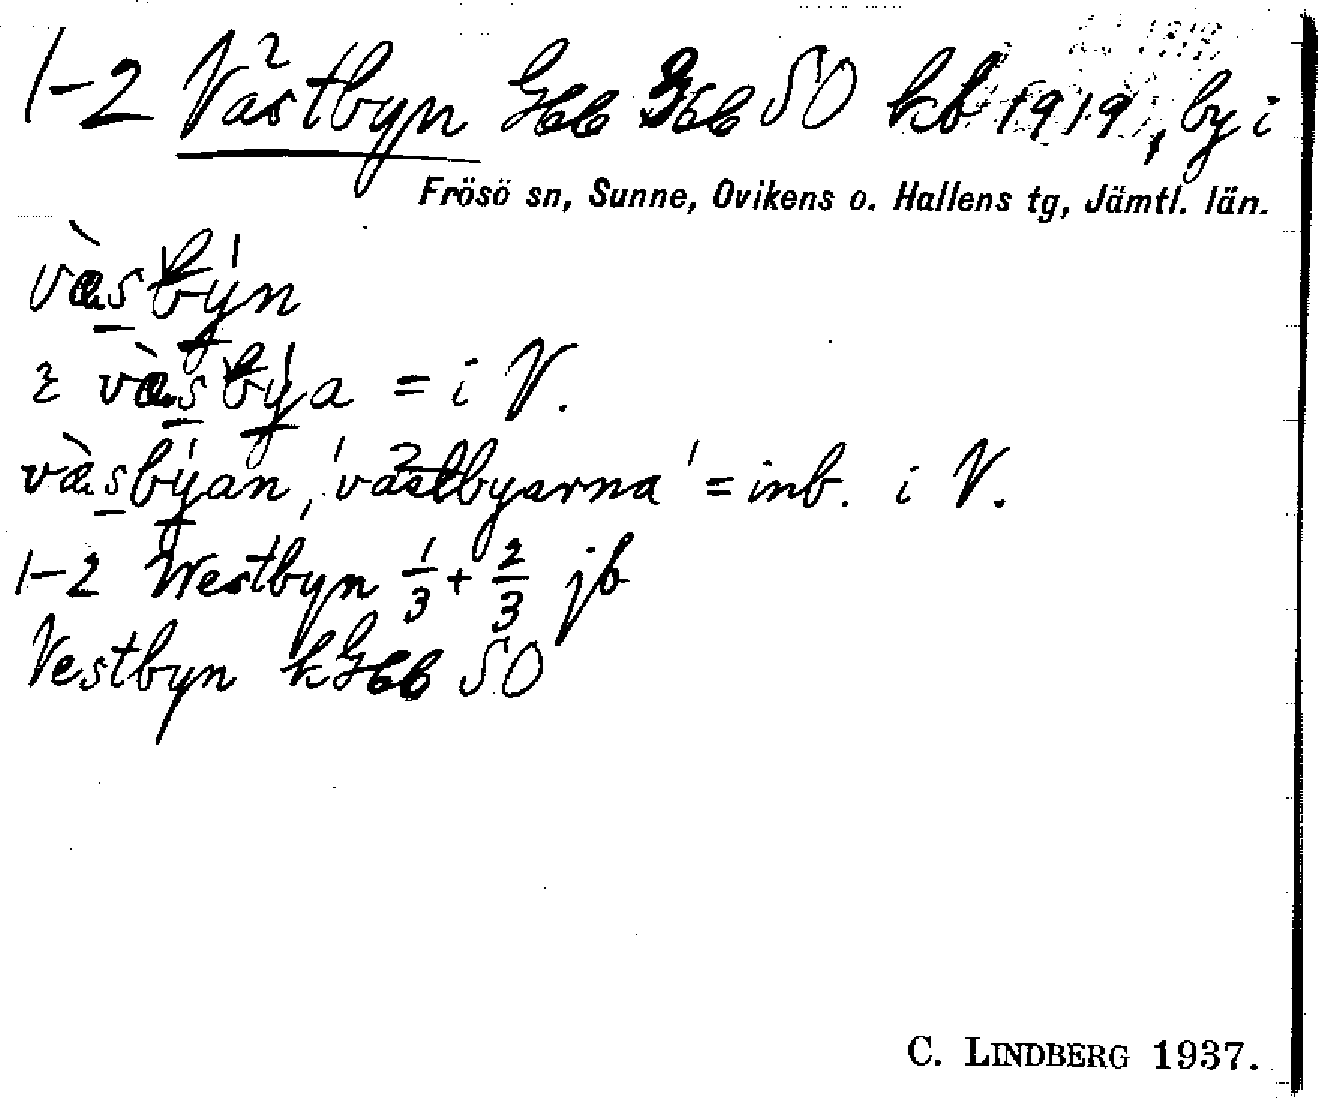 1-2 Västbyn Gbb Gbb SO kb 1919, by i
Frösö sn, Sunne, Ovikens o. Hallens tg, Jämtl. län.
væ̀sbýn
i væ̀sbýa = i V.
væ̀sbýan, 'västbyarna' = inb. i V.
1-2 Westbyn 1/3 + 2/3 jb
Vestbyn kGbb SO
C. LINDBERG 1937.